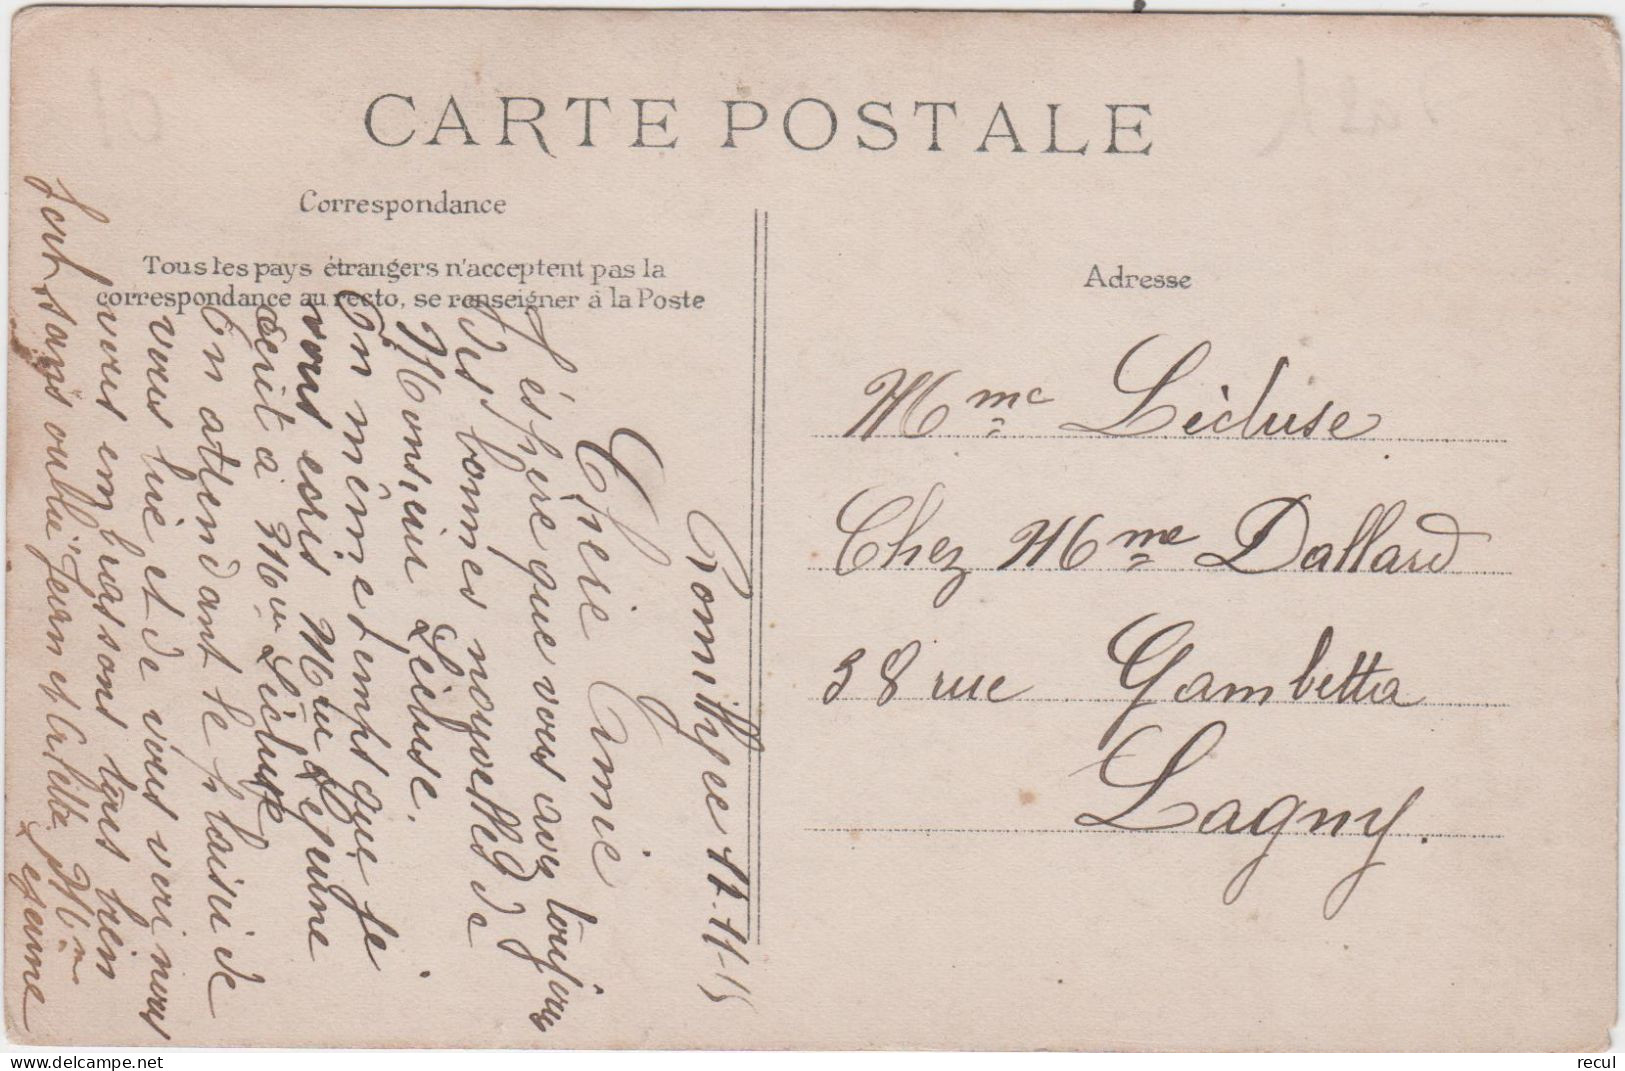 CARTE POSTALE
Correspondance
Tous les pays étrangers n'acceptent pas la
correspondance au recto, se renseigner à la Poste
Adresse
Mme Lécluse
Chez Mme Dallard
38 rue Gambetta
Lagny.
Romilly ce 17-11-15
Cherie Amie
J'éspère que vous avez toujours
des bonnes nouvelles de
Monsieur Lécluse.
En même temps que je
vous ecris Mr Lejeune
écrit à Mr Lécluse
En attendant le plaisir de
vous lire et de vous voir nous
vous embrassons tous bien
fort sans oublié Jean et Arlette. Mme
Lejeune
www.delcampe.net
recul